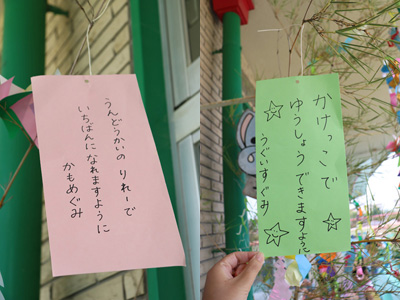 うんどうかいの りれーで
いちばんに なれますように
かもめぐみ
かけっこで
ゆうしょうできますように
うぐいすぐみ